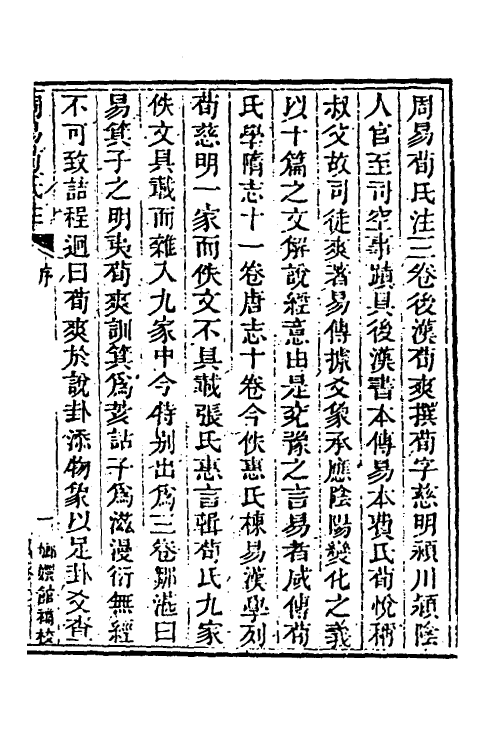 周易荀氏注三卷後漢荀爽撰荀字慈明潁川潁陰
人官至司空事蹟具後漢書本傳易本費氏荀悅稱
叔父故司徒爽著易傳據爻象承應陰陽變化之義
以十篇之文解說經意由是兖豫之言易者咸傳荀
氏學隋志十一卷唐志十卷今佚惠氏棟易漢學列
荀慈明一家而佚文不具載張氏惠言輯荀氏九家
佚文具載而雜入九家中今特别出為三卷鄒湛曰
易箕子之明夷荀爽訓箕為荄詁子為滋漫衍無經
不可致詰程迥曰荀爽於說卦添物象以足卦爻查
周易荀氏注
序
一
嫏嬛館補校